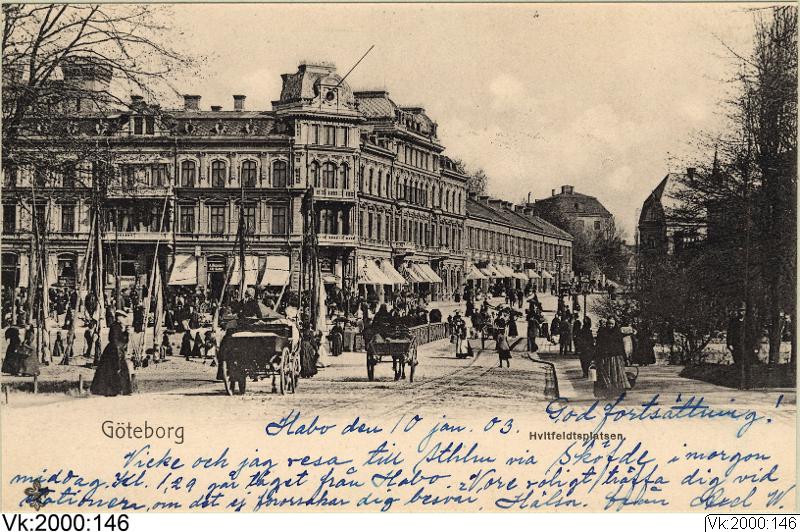 God fortsättning!
Göteborg
Habo den 10 jan. 03.
Hvitfeldtsplatsen.
Vicke och jag resa till Sthlm via Sköfde i morgon
middag. Kl. 1,29 går tåget från Habo. Vore roligt träffa dig vid
stationen, om det ej förorsakar dig besvär. Hälsn. från Axel W.
Vk:2000:146
Vk:2000:146